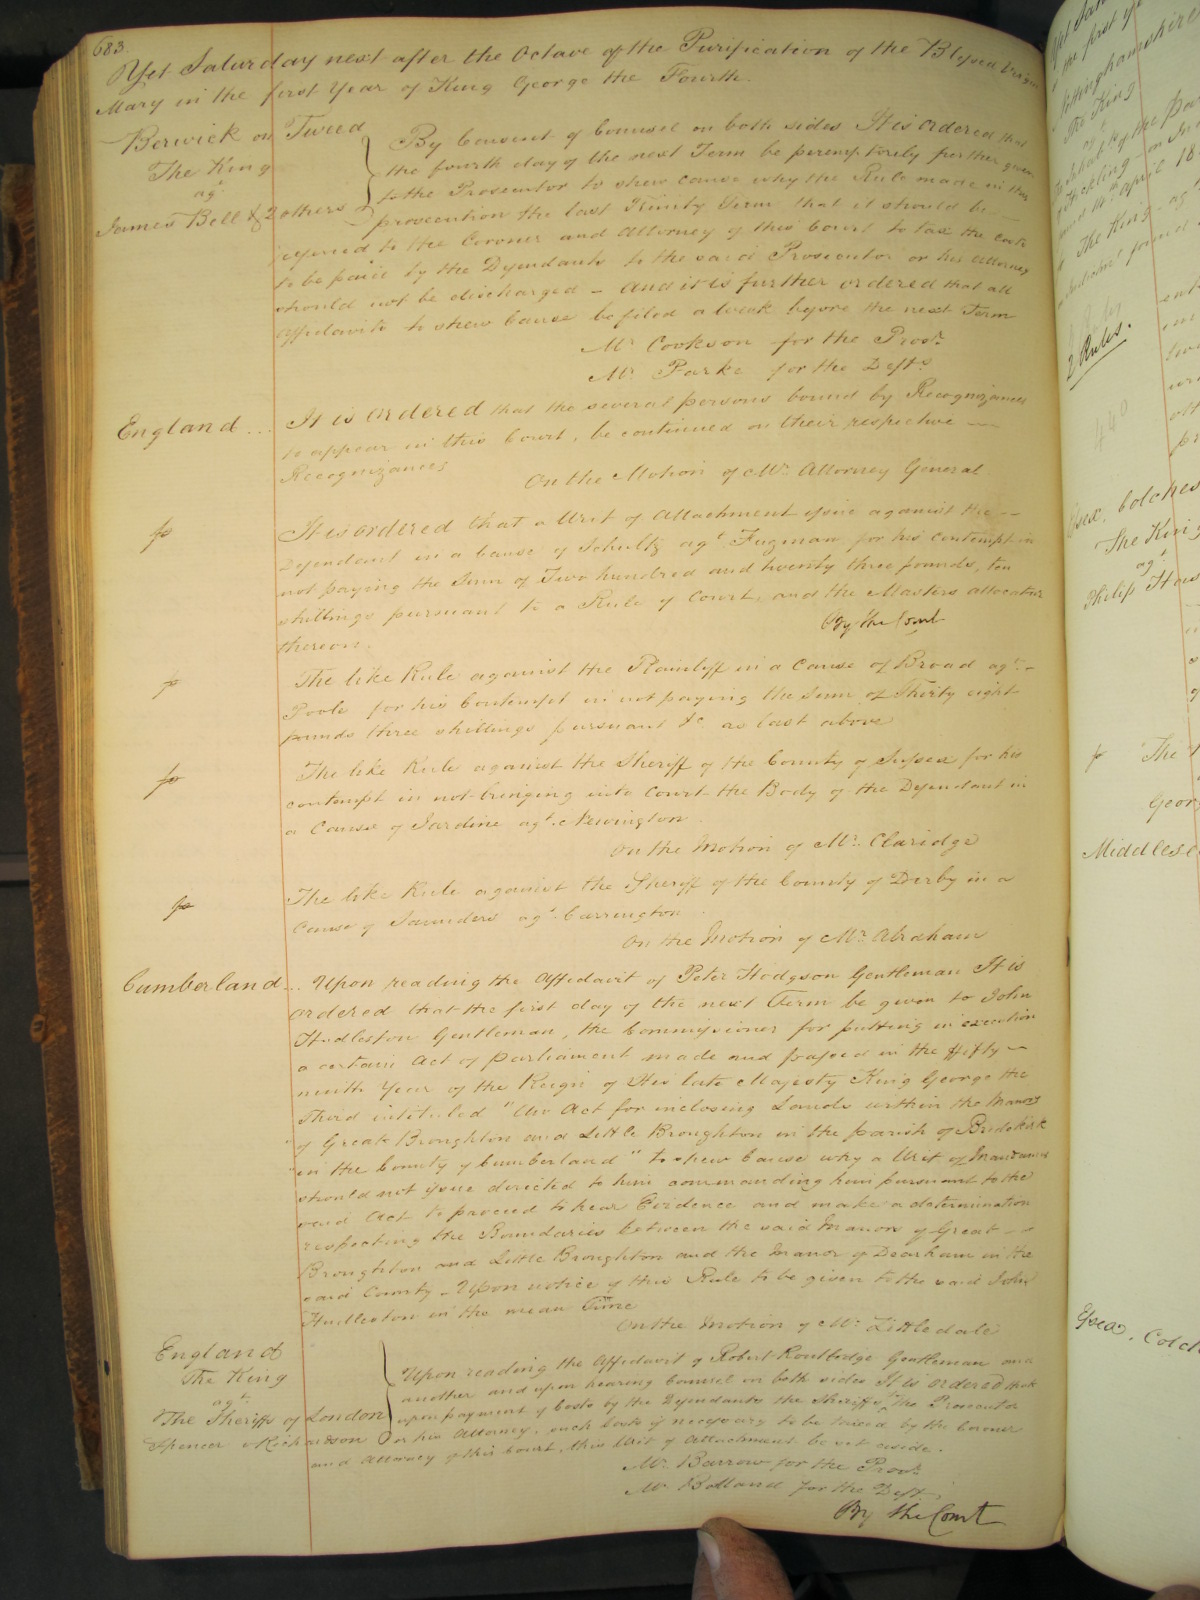 683.
Yet Saturday next after the Octave of the Purification of the Blessed Virgin
Mary in the first Year of King George the Fourth.
Berwick on Tweed
The King
agt
James Bell & 2 others
By Consent of Counsel on both sides It is ordered that
the fourth day of the next Term be peremptorily further given
to the Prosecutor to shew cause why the Rule made in this
prosecution the last Trinity Term that it should be
referred to the Coroner and Attorney of this Court to tax the costs
to be paid by the Defendants to the said Prosecutor or his Attorney
should not be discharged – And it is further ordered that all
Affidavits to shew Cause be filed a week before the next Term
Mr. Cookson for the Prosr.
Mr. Parke for the Defts.
England ...
It is ordered that the several persons bound by Recognizances
to appear in this Court, be continued on their respective —
Recognizances
On the Motion of Mr. Attorney General.
It is ordered that a Writ of Attachment issue against the --
Defendant in a Cause of Schultz agt for his contempt in
not paying the Sum of Two hundred and twenty three pounds, ten
shillings pursuant to a Rule of Court, and the Masters allocatur
thereon.
By the Court
The like Rule against the Plaintiff in a Cause of Broad agt. -
Poole for his Contempt in not paying the Sum of Thirty eight
pounds three shillings pursuant &c as last above
The like Rule against the Sheriff of the County of Sussex for his
contempt in not bringing into Court the Body of the Defendant in
a Cause of Jardine agt. Newington.
On the Motion of Mr. Claridge
The like Rule against the Sheriff of the County of Derby in a
Cause of Saunders agt. Carrington.
On the Motion of Mr. Abraham
Cumberland ...
Upon reading the Affidavit of Peter Hodgson Gentleman It is
ordered that the first day of the next Term be given to John
Hudleston Gentleman, the Commissioner for putting in execution
a certain Act of parliament made and passed in the fifty —
ninth Year of the Reign of His late Majesty King George the
Third intituled "An Act for inclosing Lands within the Manors
"of Great Broughton and Little Broughton in the parish of Bridekirk
"in the County of Cumberland" to shew Cause why a Writ of Mandamus
should not issue directed to him commanding him pursuant to the
said Act to proceed to hear Evidence and make a determination
respecting the Boundaries between the said Manors of Great - -
Broughton and Little Broughton and the Manor of Dearham in the
said County – Upon notice of this Rule to be given to the said John
Hudleston in the mean Time
On the Motion of Mr. Littledale
England
The King
agt.
The Sheriffs of London
Spencer & Richardson
Upon reading the Affidavit of Robert Routledge Gentleman and
another and upon hearing Counsel on both sides It is ordered that
upon payment of Costs by the Defendants the Sheriffs to the Prosecutor
or his Attorney, such Costs if necessary to be taxed by the Coroner
and Attorney of this Court, this Writ of Attachment be set aside.
Mr. Barrow for the Prosr.
Mr. Bolland for the Deft.
By the Court
Nottinghamshire
The King
2 Rules.
Essex. Colches
The King
agt
Philip
The
Georg
Middlese
Essex. Colch